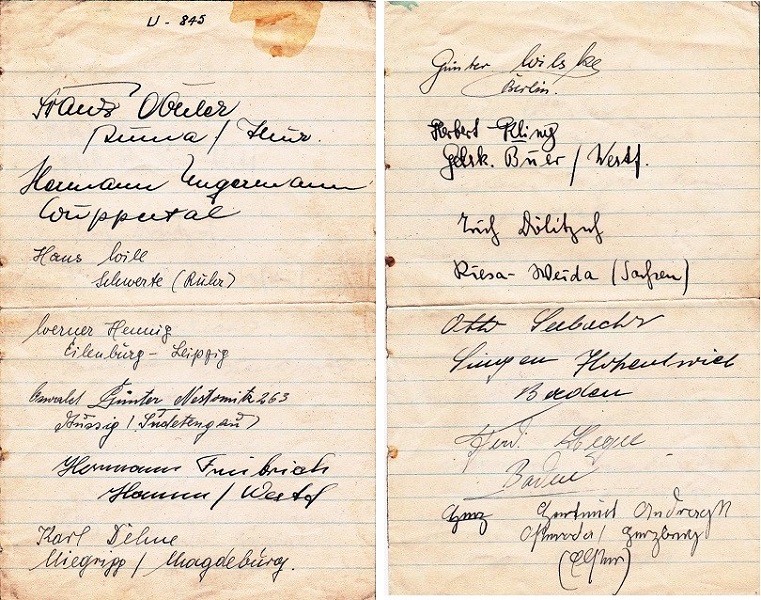 U - 845
Franz
/ Thür.
Hermann Ungermann
Wuppertal
Hans Will
Schwerte (Ruhr)
Werner Hennig
Eilenburg - Leipzig
Oswald Günter Nestomitz 263
Aussig / Sudetengau)
Hermann
Hamm / Westf
Karl Dehne
Niegripp / Magdeburg.
Günter Wilske
Berlin.
Herbert Kling
Gelsk. Buer / Westf.
Erich
Riesa - Weida (Sachsen)
Otto Seebacher
Singen Hohentwiel
Baden
Baden
Gertmut
Herzberg
(Elster)